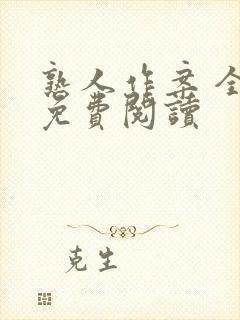 熟人作案全
免費閱讀
克生